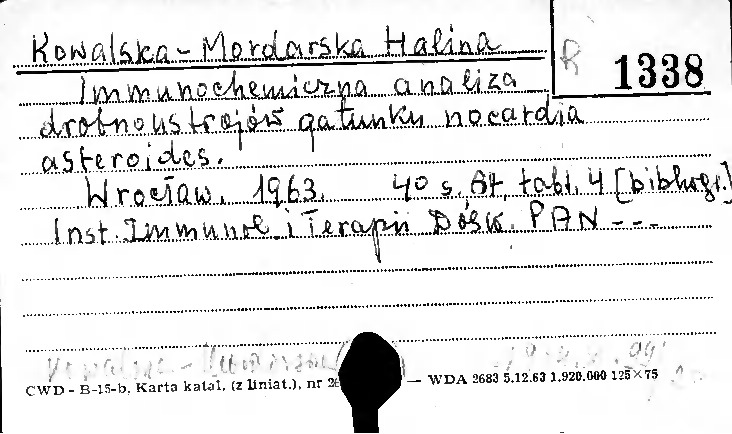 Kowalska-Mordarska Halina
R 1338
Immunochemiczna analiza
drobnoustrojów gatunku nocardia
asteroides.
Wrocław. 1963. 40 s. tabl. 4 [bibliogr.]
Inst. Immunol i Terapii Dośw. PAN ---
CWD - B-15-b, Karta katal. (z liniat.), nr — WDA 2683 5.12.63 1.920.000 125×75